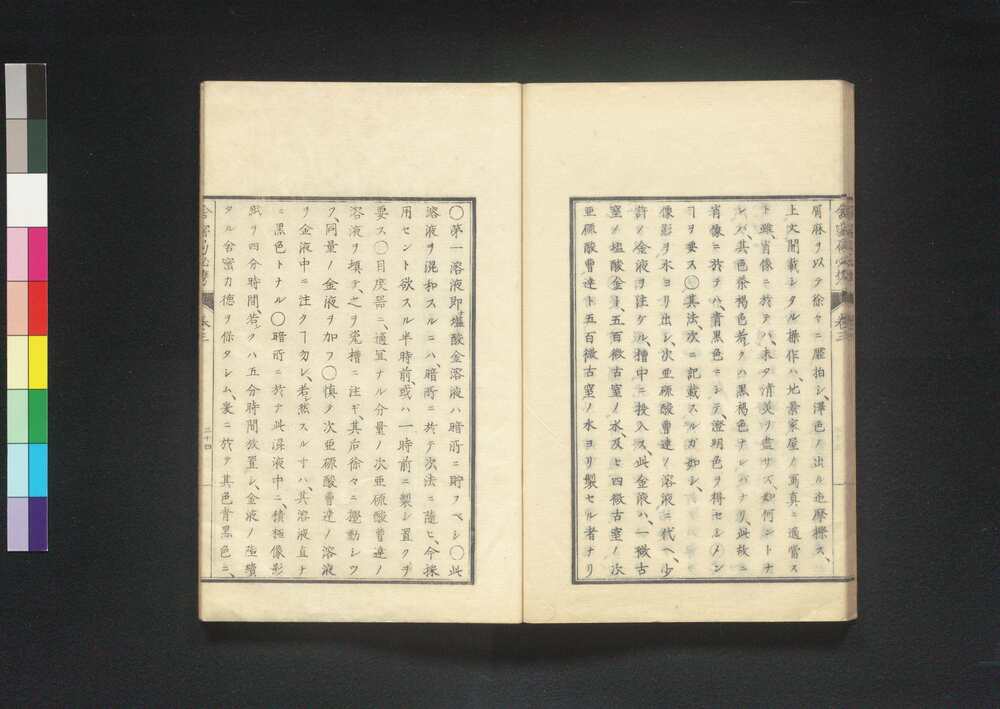 屑麻ヲ以テ徐々ニ壓拍シ、澤色ノ出ル迄摩擦ス、
上文開載シタル操作ハ、地景家屋ノ寫真ニ適當ス
ト雖、肖像ニ於テハ、未タ清美ヲ盡サス、如何ントナ
レハ、其色紫褐色若クハ黒褐色ナレバナリ、此故ニ
肖像ニ於テハ、青黒色ニシテ、澄明色ヲ得セシメン
ヿヲ要ス〇其法、次ニ記載スルガ如シ、
像影ヲ水ヨリ出シ、次亜硫酸曹達ノ溶液ニ代ヘ、少
許ノ金液ヲ注ゲル、槽中ニ投入ス、此金液ハ、一微古
窒ノ塩酸金ト、五百微古窒ノ水、及ヒ四微古窒ノ次
亜硫酸曹達ト五百微古窒ノ水ヨリ製セル者ナリ
〇第一溶液即塩酸金溶液ハ暗所ニ貯フベシ〇此
溶液ヲ混和スルニハ、暗所ニ於テ次法ニ隨ヒ、今採
用セント欲スル半時前、或ハ一時前ニ製シ置クヲ
要ス〇目度器ニ、適宜ナル分量ノ次亜硫酸曹達ノ
溶液ヲ填テ、之ヲ瓷槽ニ注ギ、其后徐々ニ攪動シツ
ヽ、同量ノ金液ヲ加フ〇慎ヲ次亜硫酸曹達ノ溶液
ヲ金液中ニ注クヿ勿レ、若シ然スルキハ其溶液直チ
ニ黒色トナル〇暗所ニ於テ此溶液中ニ、積極像影
紙ヲ四分時間、若クハ五分時間放置シ、金液ノ
タル舎密力德ヲ保タシム、爰ニ於テ其色青黒色ニ、
卷三
三十四